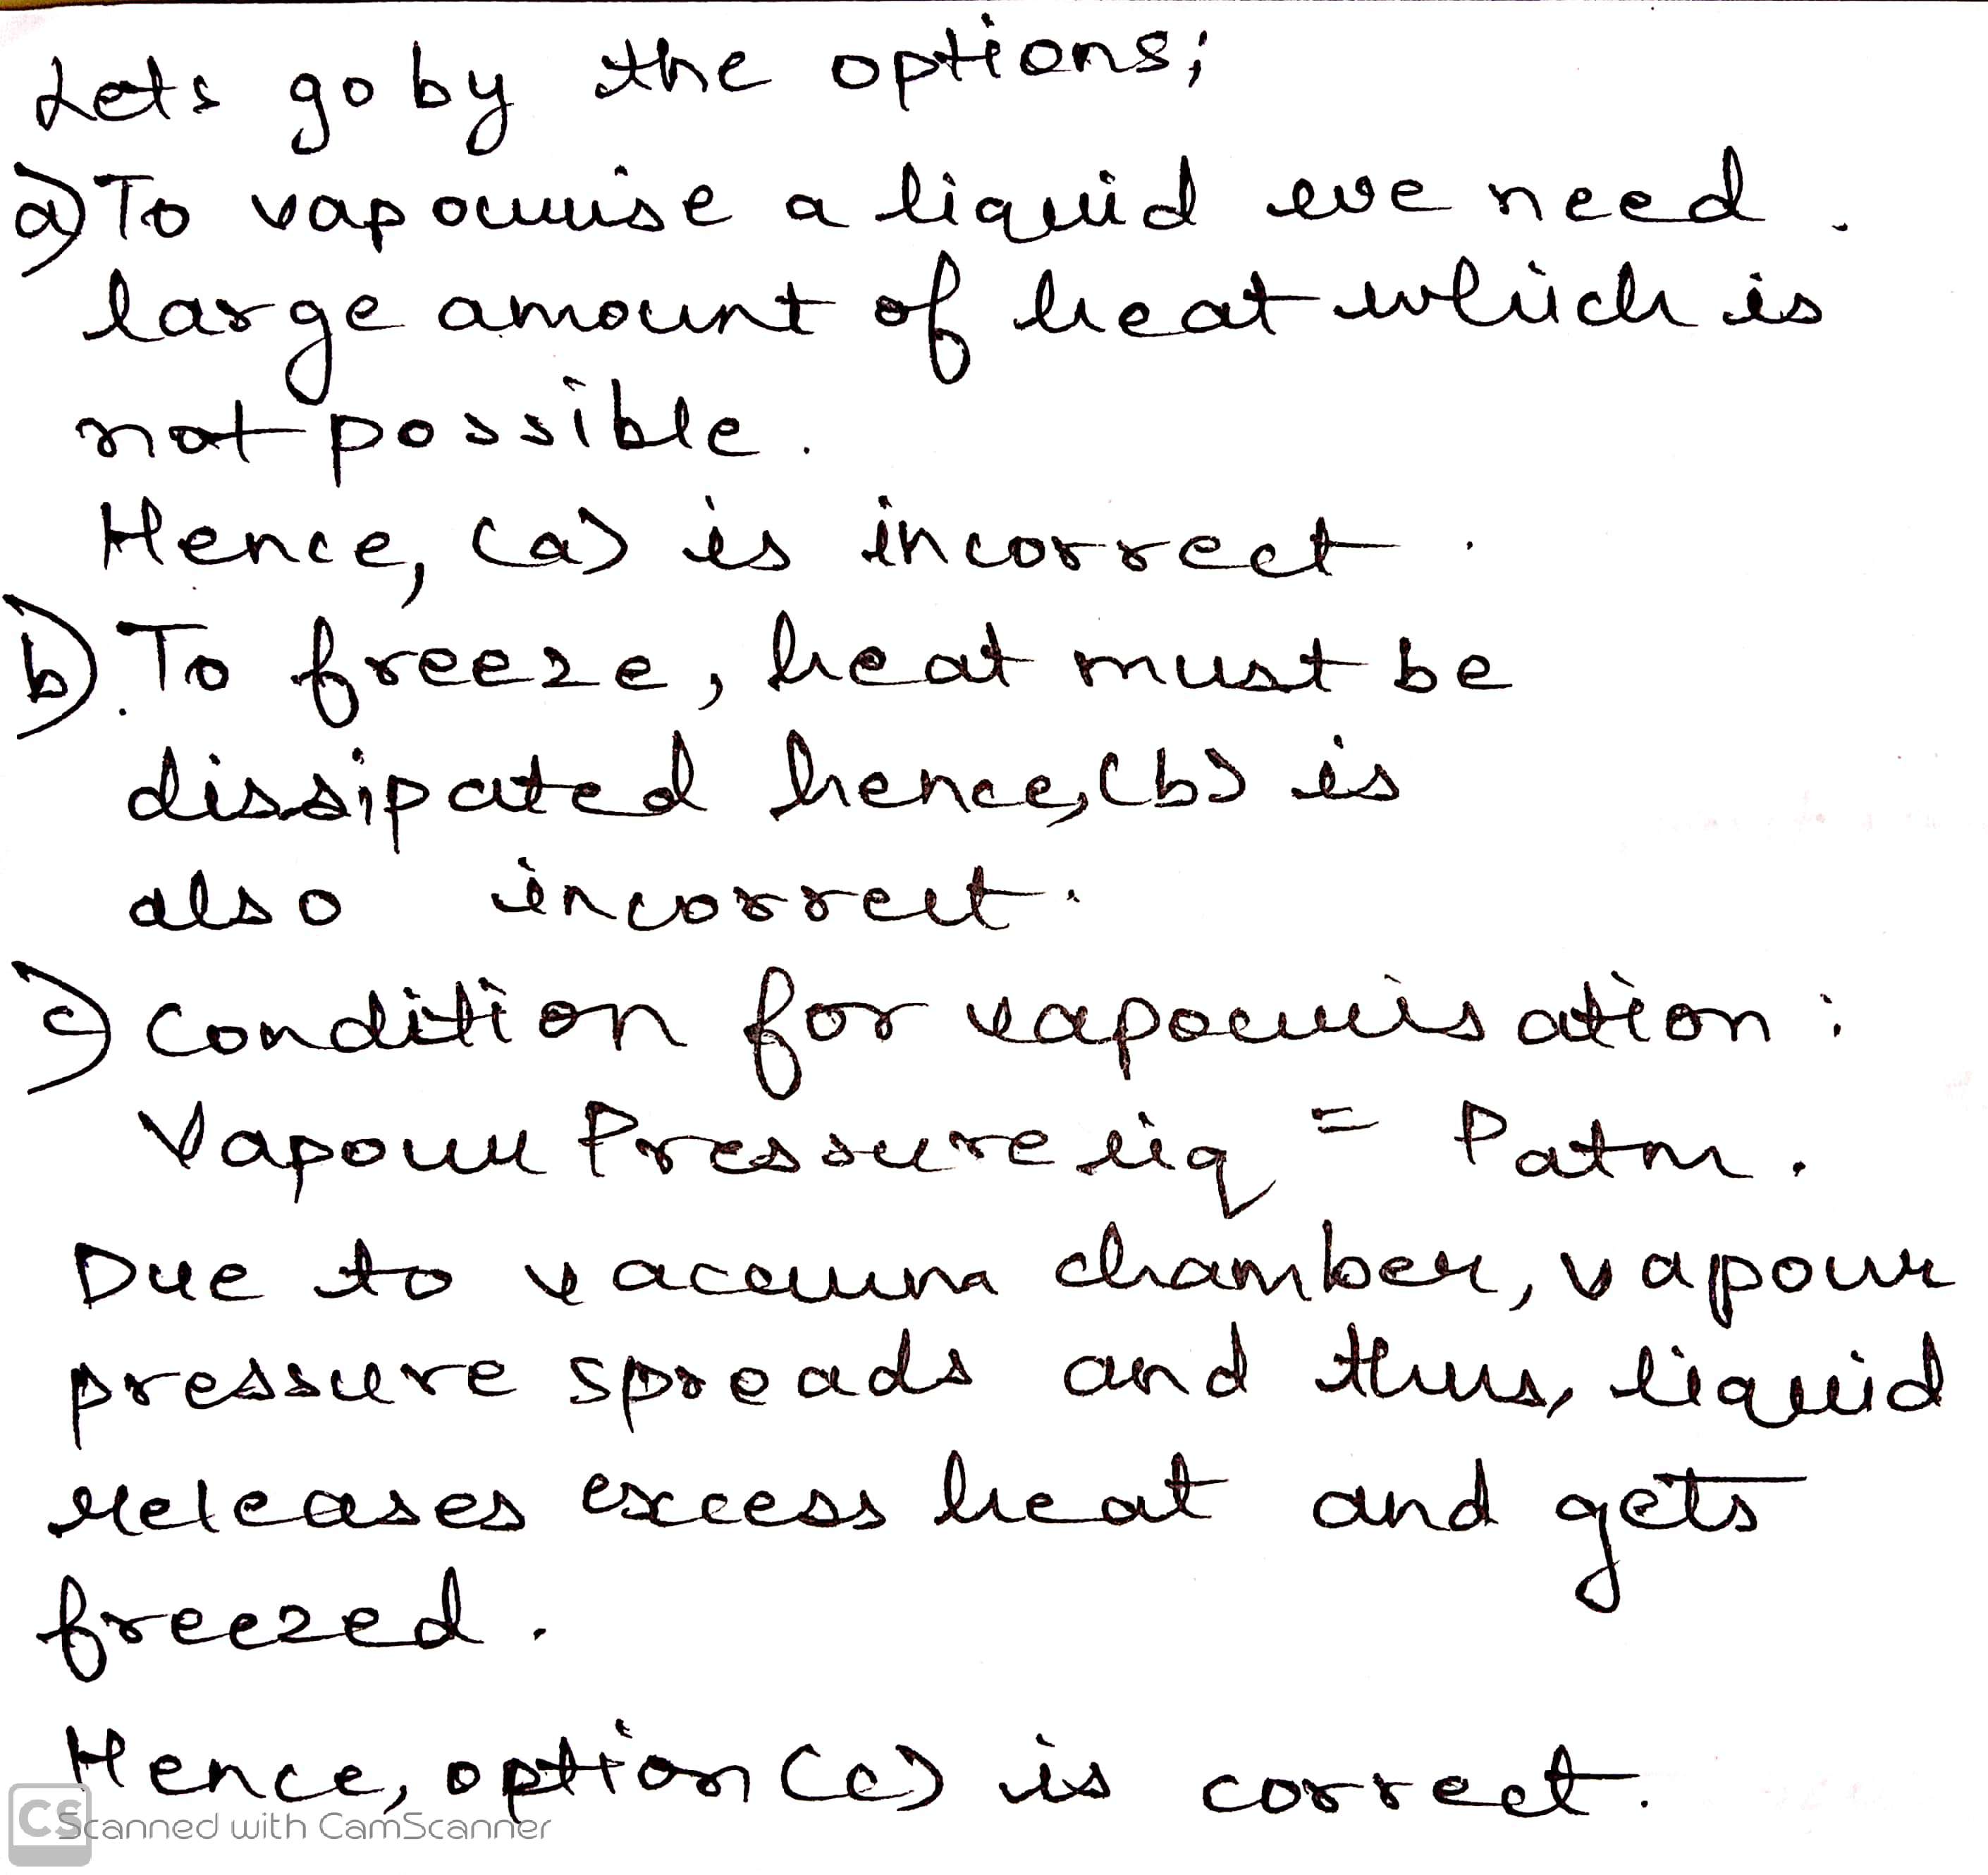 Lets go by the options;
a) To vapourise a liquid we need.
large amount of heat which is
not possible.
Hence, (a) is incorrect.
b) To freeze, heat must be
dissipated hence, (b) is
also incorrect.
c) Condition for vapourisation:
Vapour Pressure liq = Patm.
Due to vacuum chamber, vapour
pressure spreads and thus, liquid
releases excess heat and gets
freezed.
Hence, option (c) is correct.
CS Scanned with CamScanner